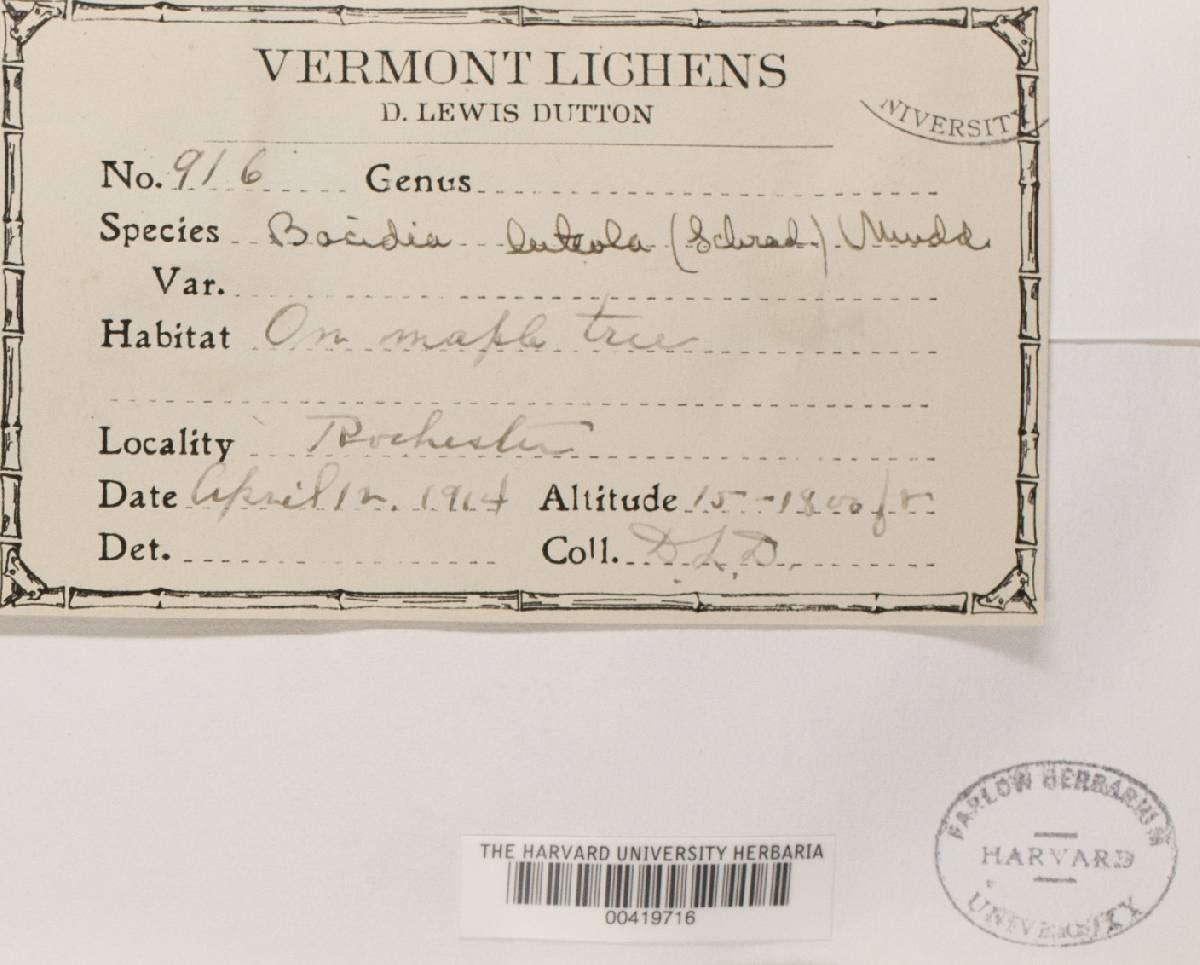 VERMONT LICHENS
D. LEWIS DUTTON
NIVERSITY
No. 916 Genus
Species Bacidia luteola (Schrad.) Mudd.
Var.
Habitat On maple tree
Locality Rochester
Date April 12. 1914 Altitude 15-1800 ft
Det. Coll. D. L. D.
THE HARVARD UNIVERSITY HERBARIA
00419716
FARLOW HERBARIUM
HARVARD
UNIVERSITY